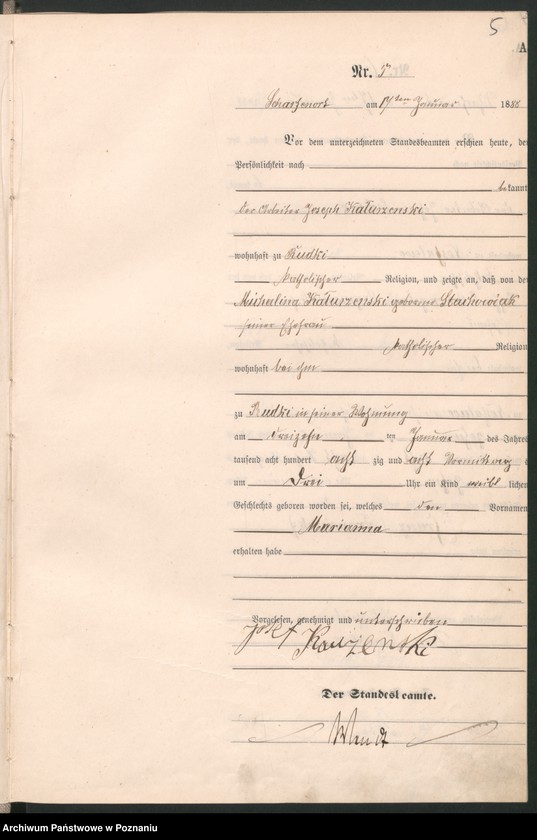 5
A
Nr. 5.
Scharfenort am 17ten Januar 1888
Vor dem unterzeichneten Standesbeamten erschien heute, der
Persönlichkeit nach
bekannt
der Arbeiter Joseph Kałuszenski
wohnhaft zu Rudki
katholischer Religion, und zeigte an, daß von der
Michalina Kałuszenski geborene Stachowiak
seiner Ehefrau
katholischer Religion
wohnhaft bei ihm
zu Rudki in seiner Wohnung
am dreizehn ten Januar des Jahres
tausend acht hundert acht zig und acht Vormittags
um Drei Uhr ein Kind weibl lichen
Geschlechts geboren worden sei, welches den Vornamen
Marianna
erhalten habe
Vorgelesen, genehmigt und unterschrieben
Der Standesbeamte.
Wendt
Archiwum Państwowe w Poznaniu